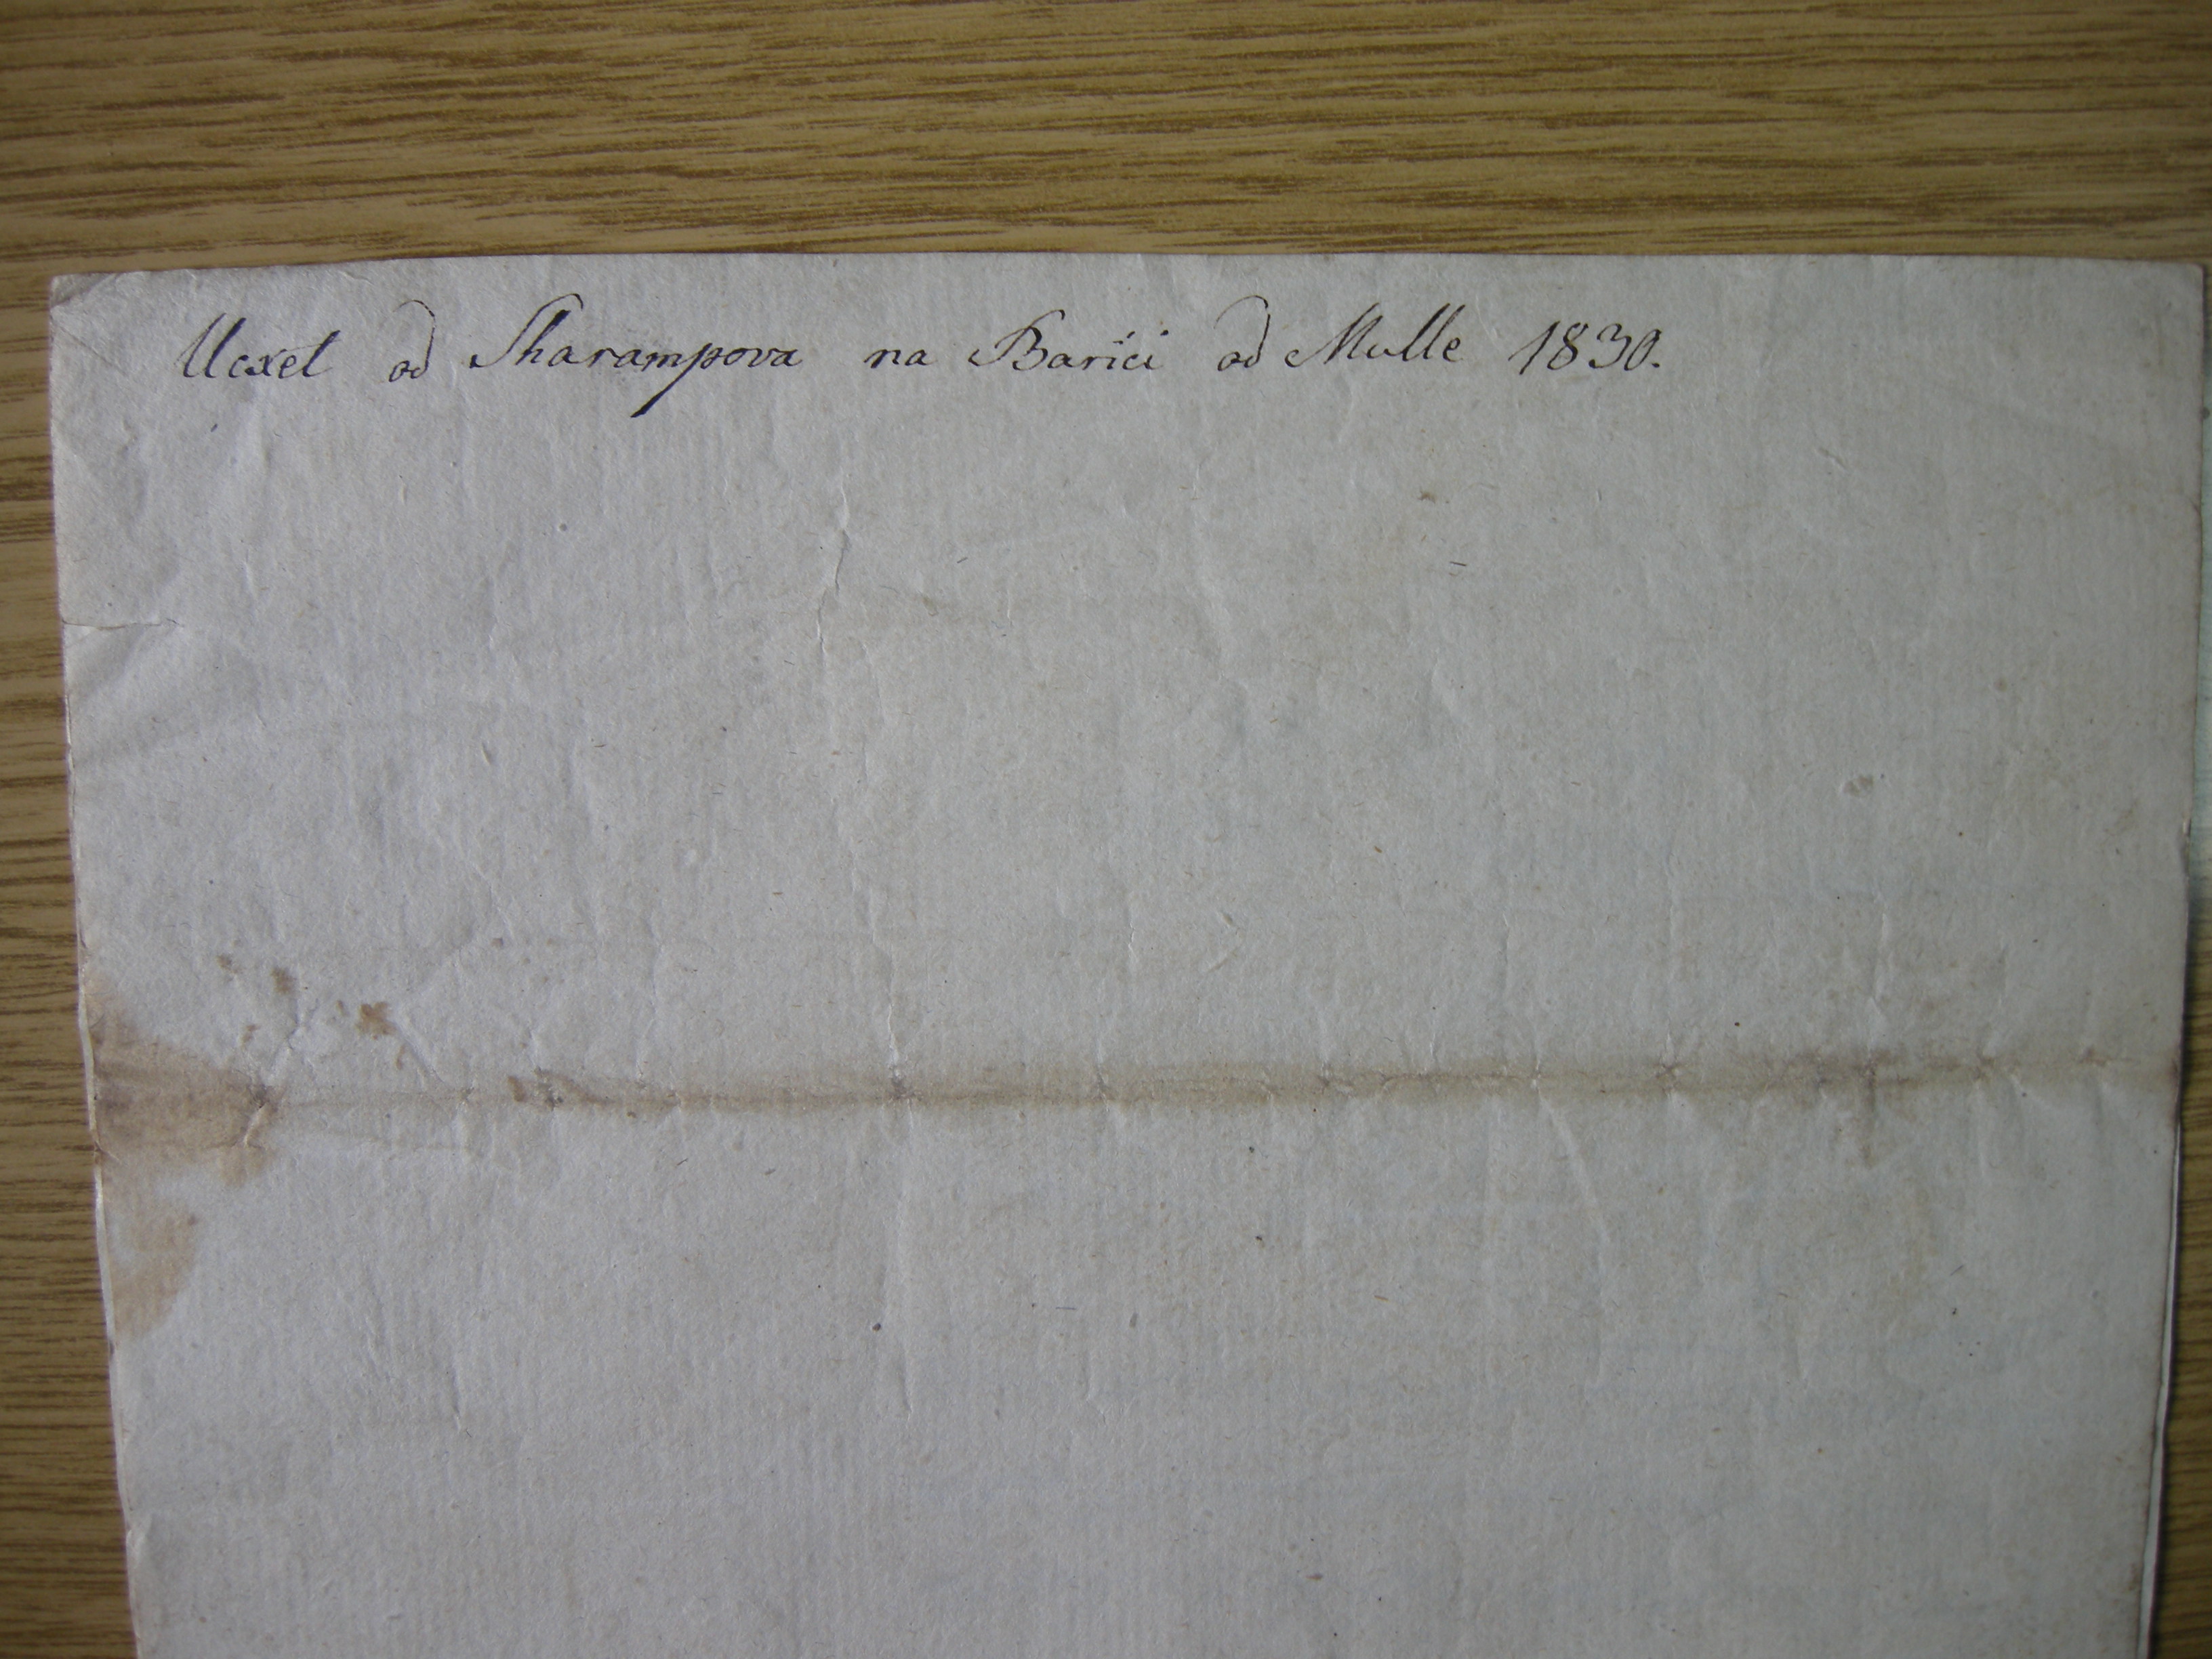 Ucxet od Sharampova na Barici od Mulle 1830.